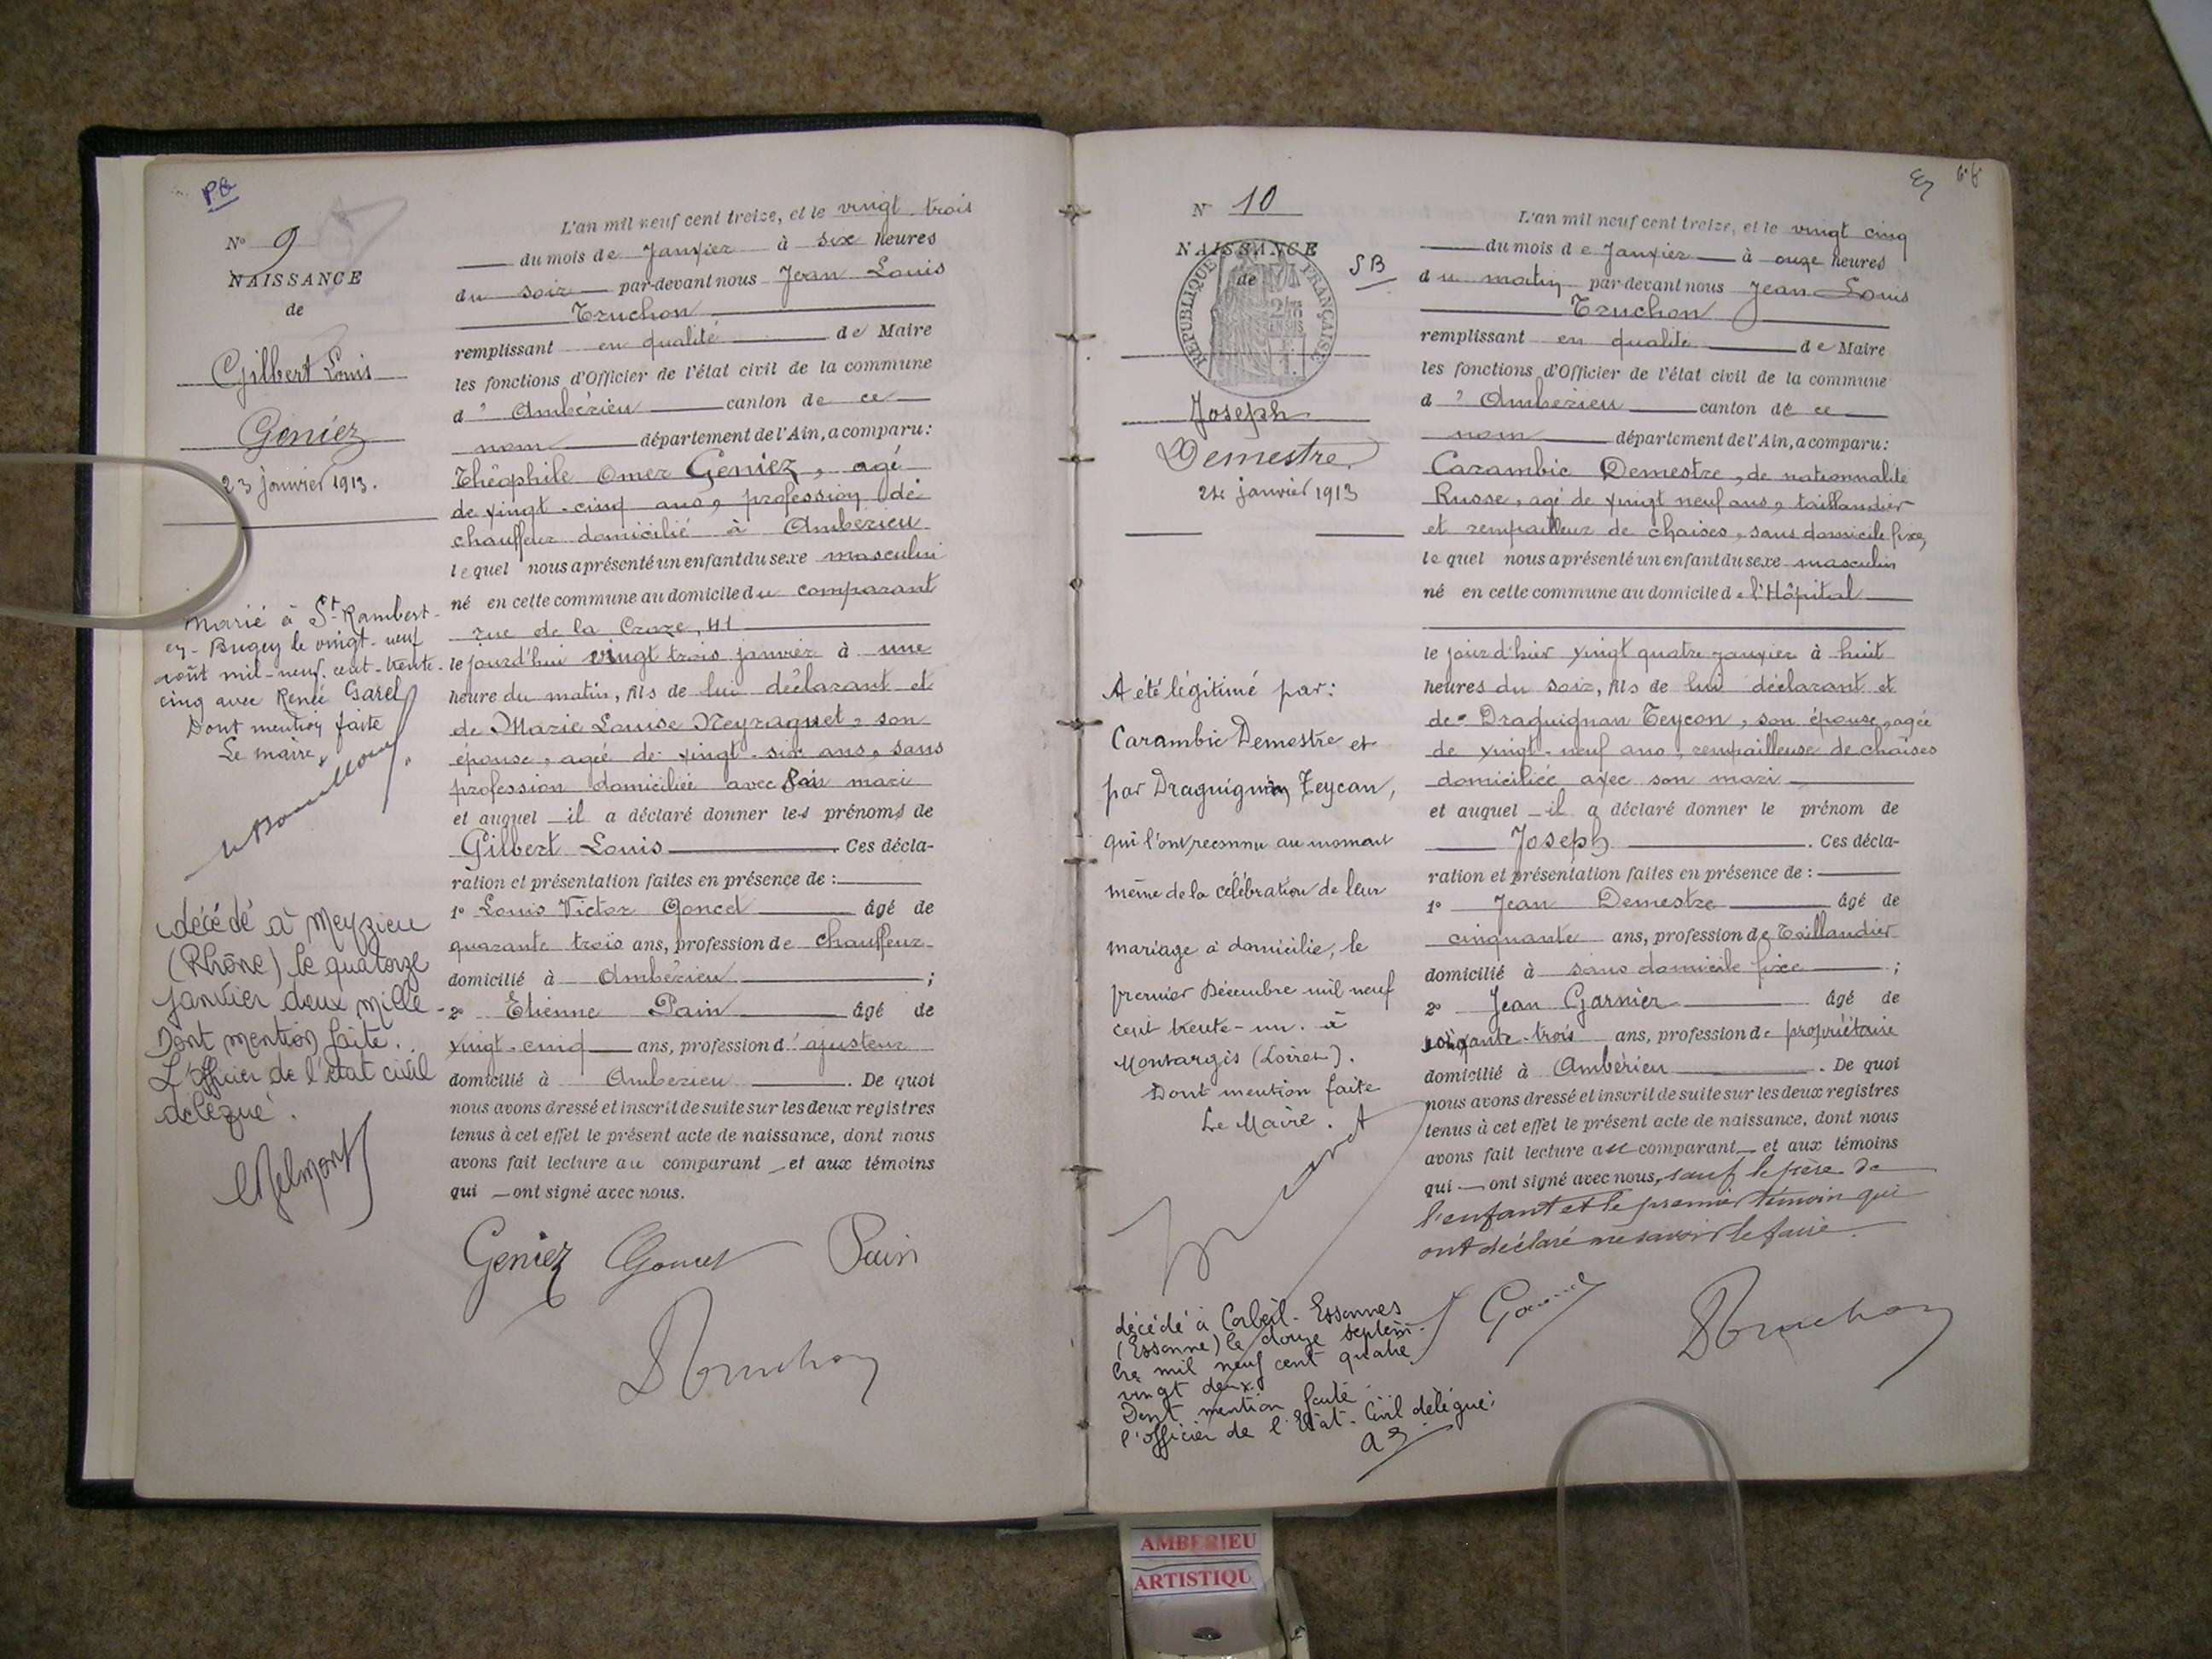 PB
N° 9
NAISSANCE
de
Gilbert Louis
Geniez
23 janvier 1913.
Marié à St Rambert-
en-Bugey le vingt-neuf
août mil-neuf-cent-trente-
cinq avec Renée Garel
Dont mention faite
Le maire,
décédé à Meyzieu
(Rhône) le quatorze
janvier deux mille -
Dont mention faite.
L'officier de l'état civil
délégué.
L'an mil neuf cent treize, et le vingt trois
du mois de Janvier à six heures
du soir par-devant nous Jean Louis
Truchon
remplissant en qualité de Maire
les fonctions d'Officier de l'état civil de la commune
d'Ambérieu canton de ce
nom département de l'Ain, a comparu:
Théophile Omer Geniez, agé
de vingt-cinq ans, profession de
chauffeur domicilié à Ambérieu
lequel nous a présenté un enfant du sexe masculin
né en cette commune au domicile du comparant
rue de la Croze, 41
le jourd'hui vingt trois janvier à une
heure du matin, fils de lui déclarant et
de Marie Louise Neyraguet, son
épouse, agée de vingt-six ans, sans
profession domiciliée avec son mari
et auquel il a déclaré donner les prénoms de
Gilbert Louis. Ces décla-
ration et présentation faites en présence de :
1° Louis Victor Goncet âgé de
quarante trois ans, profession de chauffeur
domicilié à Ambérieu ;
2° Etienne Pain âgé de
vingt-cinq ans, profession d'ajusteur
domicilié à Ambérieu. De quoi
nous avons dressé et inscrit de suite sur les deux registres
tenus à cet effet le présent acte de naissance, dont nous
avons fait lecture au comparant et aux témoins
qui ont signé avec nous.
Geniez Goncet Pain
Truchon
N° 10
NAISSANCE
de
RÉPUBLIQUE FRANÇAISE
SB
Joseph
Demestre
24 janvier 1913
A été légitimé par:
Carambic Demestre et
par Draguignan Teycan,
qui l'ont reconnu au moment
même de la célébration de leur
mariage à domicilie, le
premier Décembre mil neuf
cent trente-un. à
Montargis (Loiret).
Dont mention faite
Le Maire.
décédé à Corbeil-Essonnes
(Essonne) le douze septem-
bre mil neuf cent quatre
vingt deux.
Dont mention faite
l'officier de l'Etat-Civil délégué:
L'an mil neuf cent treize, et le vingt cinq
du mois de Janvier à onze heures
du matin par-devant nous Jean Louis
Truchon
remplissant en qualité de Maire
les fonctions d'Officier de l'état civil de la commune
d'Ambérieu canton de ce
nom département de l'Ain, a comparu:
Carambic Demestre, de nationnalité
Russe, agé de vingt neuf ans, taillandier
et rempailleur de chaises, sans domicile fixe,
lequel nous a présenté un enfant du sexe masculin
né en cette commune au domicile de l'Hôpital
le jour d'hier vingt quatre janvier à huit
heures du soir, fils de lui déclarant et
de Draguignan Teycon, son épouse, agée
de vingt-neuf ans, rempailleuse de chaises
domiciliée avec son mari
et auquel il a déclaré donner le prénom de
Joseph. Ces décla-
ration et présentation faites en présence de :
1° Jean Demestre âgé de
cinquante ans, profession de Taillandier
domicilié à sans domicile fixe ;
2° Jean Garnier âgé de
soixante-trois ans, profession de propriétaire
domicilié à Ambérieu. De quoi
nous avons dressé et inscrit de suite sur les deux registres
tenus à cet effet le présent acte de naissance, dont nous
avons fait lecture au comparant et aux témoins
qui ont signé avec nous, sauf le père de
l'enfant et le premier témoin qui
ont déclaré ne savoir le faire.
Truchon
AMBERIEU
ARTISTIQU